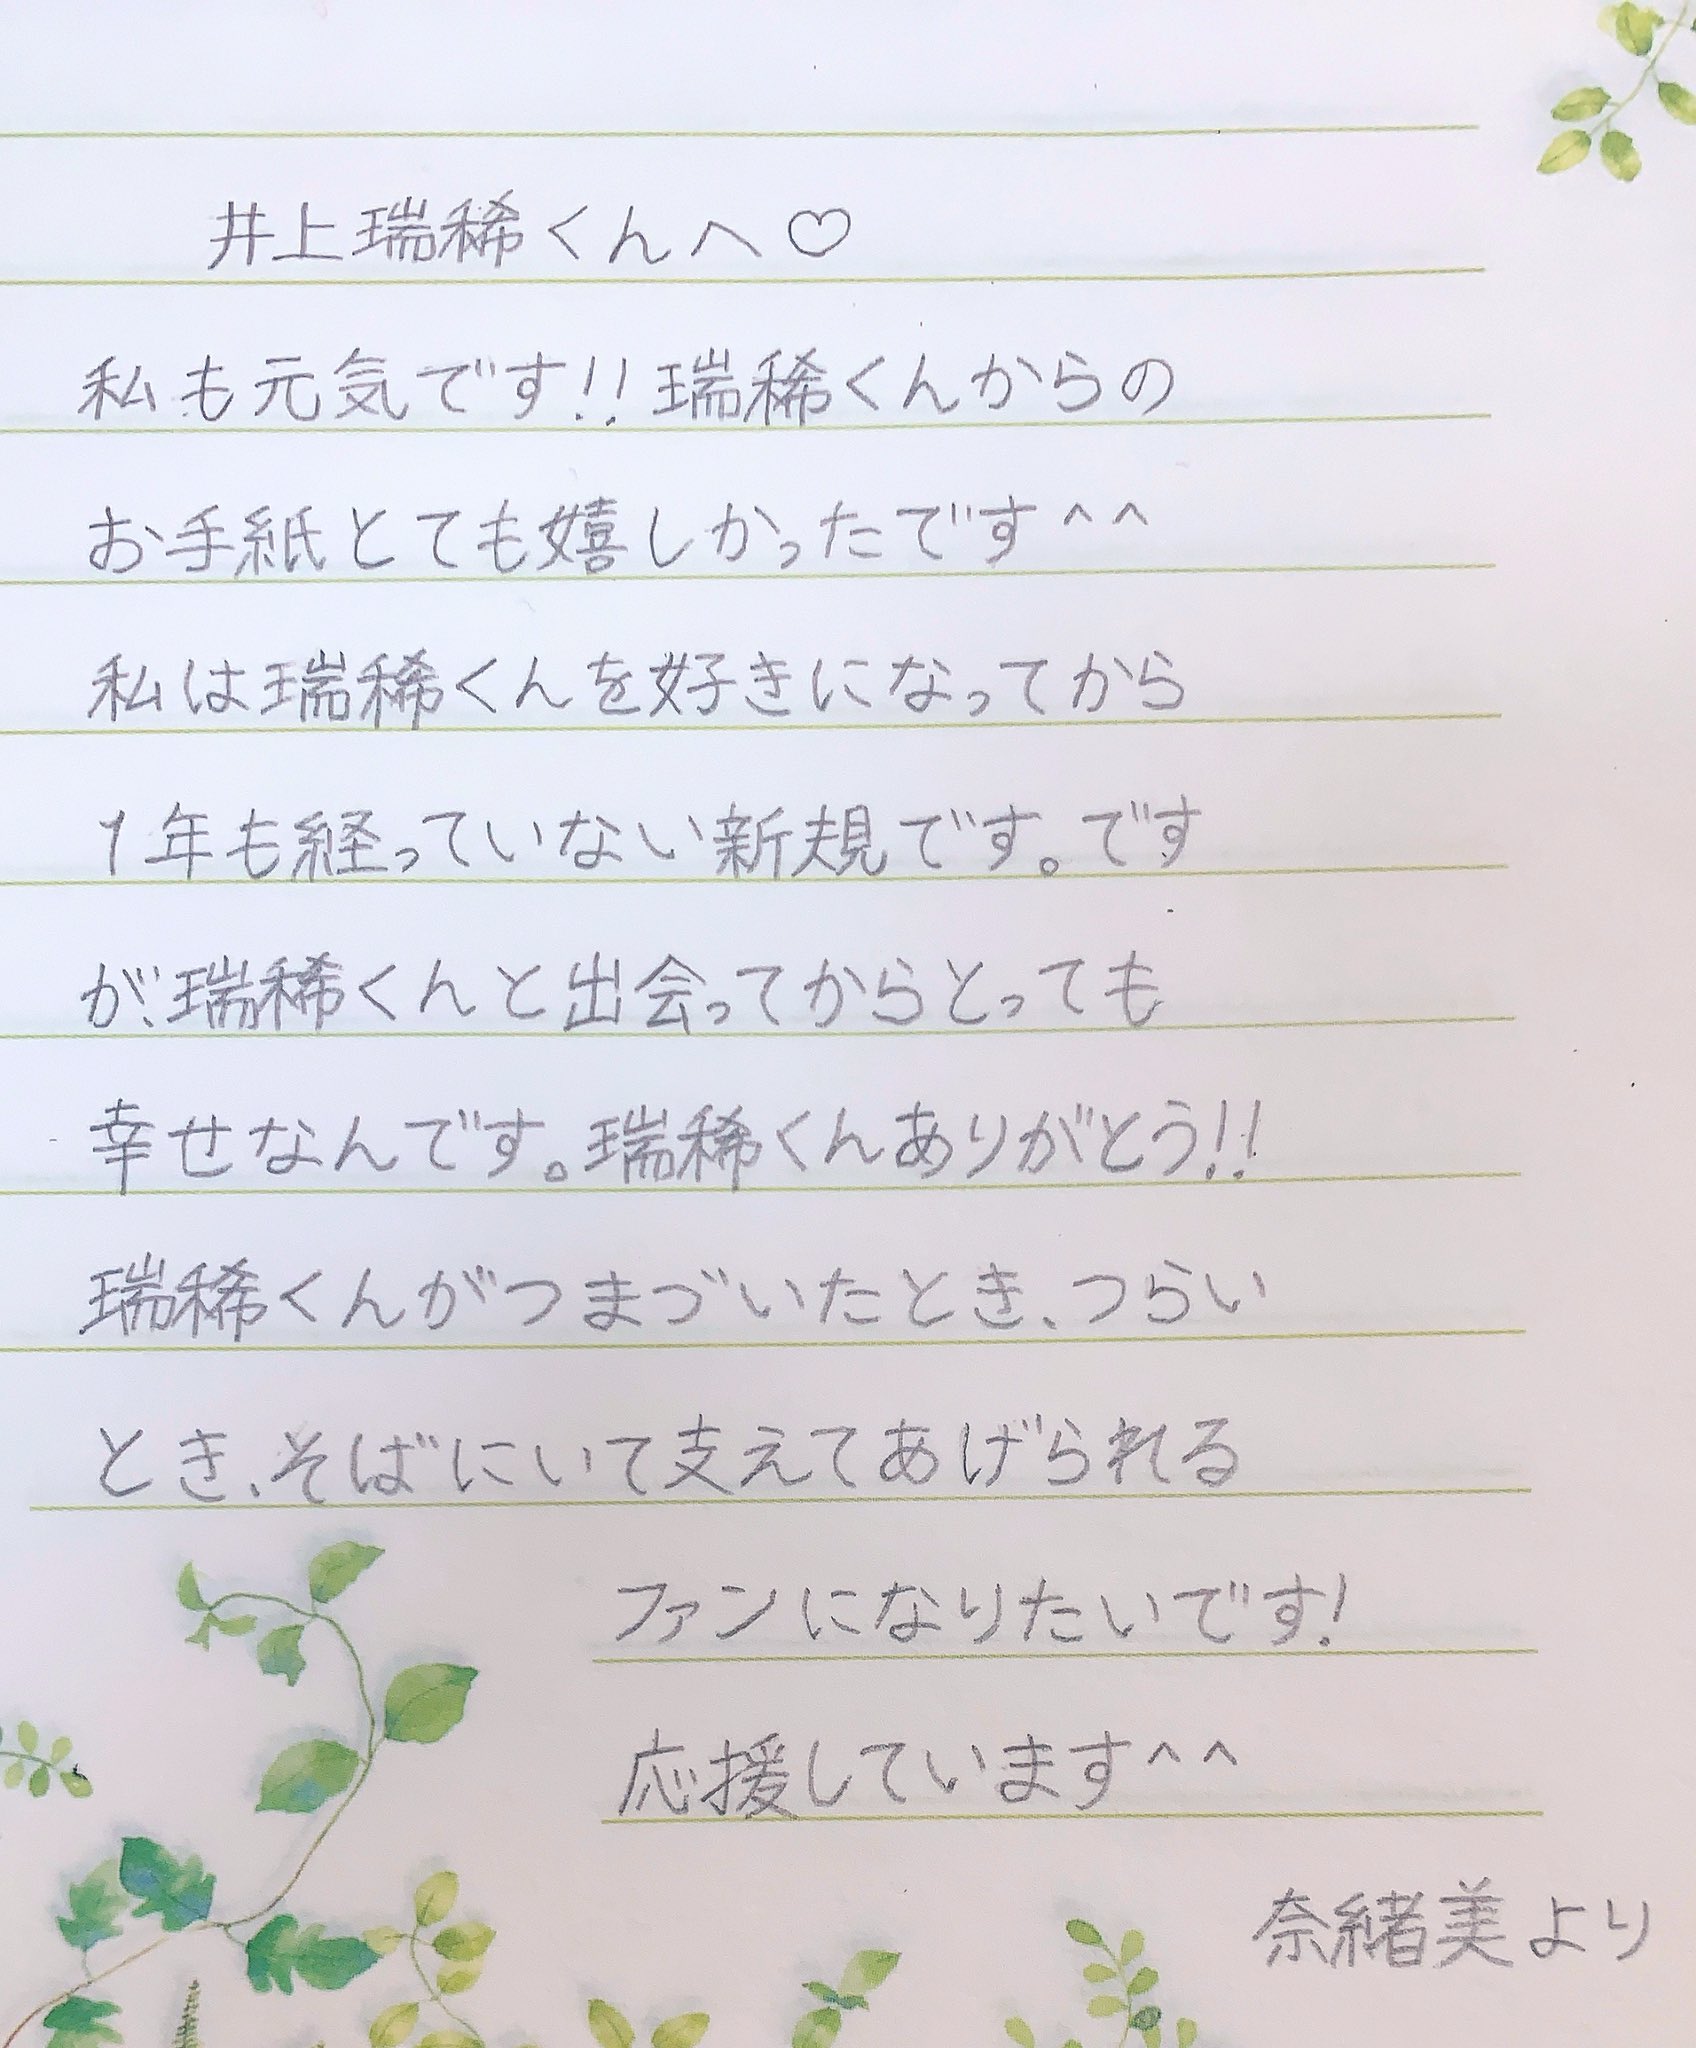 井上瑞稀くんへ♡
私も元気です!!瑞稀くんからの
お手紙とても嬉しかったです^^
私は瑞稀くんを好きになってから
1年も経っていない新規です。です
が、瑞稀くんと出会ってからとっても
幸せなんです。瑞稀くんありがとう!!
瑞稀くんがつまづいたとき、つらい
とき、そばにいて支えてあげられる
ファンになりたいです!
応援しています^^
奈緒美より